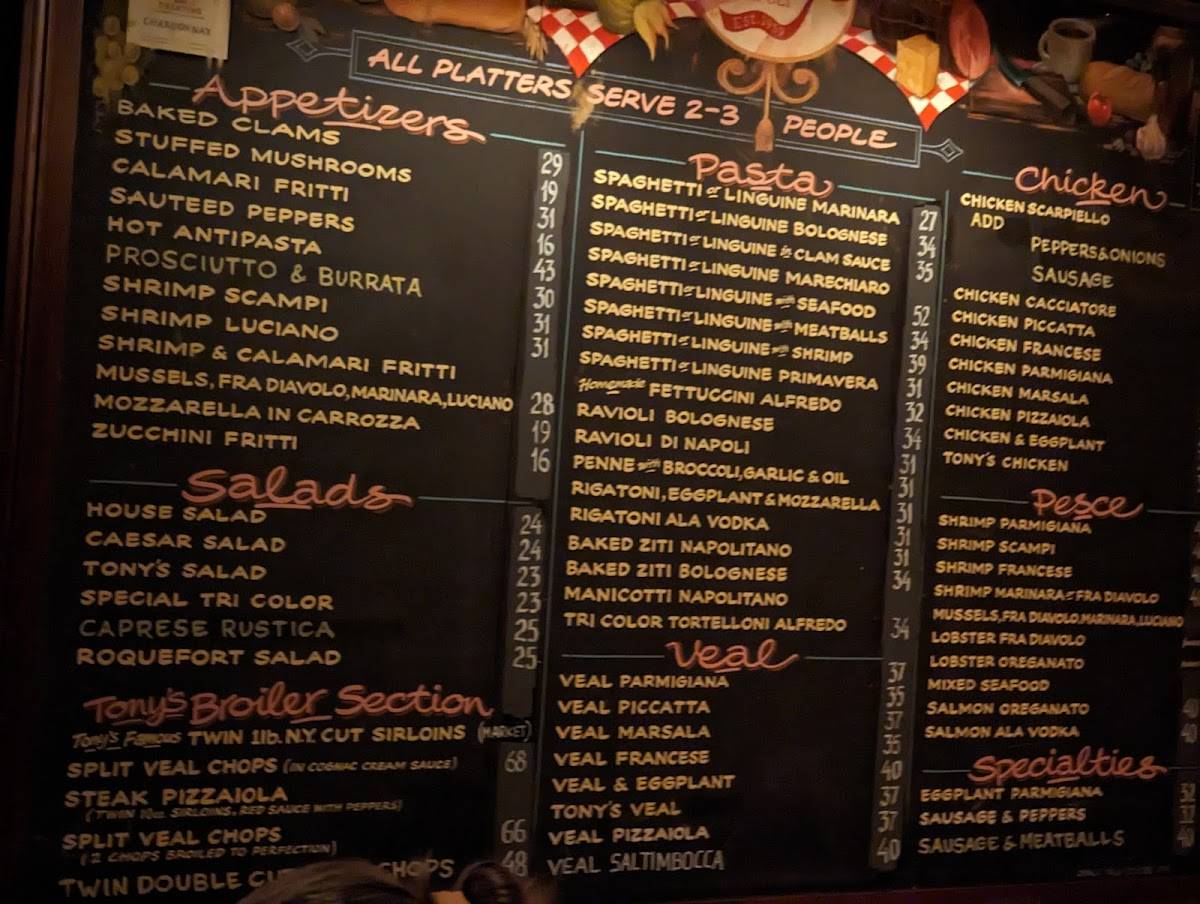 CHARDONNAY
EST. 1959
ALL PLATTERS SERVE 2-3 PEOPLE
Appetizers
BAKED CLAMS 29
STUFFED MUSHROOMS 19
CALAMARI FRITTI 31
SAUTEED PEPPERS 16
HOT ANTIPASTA 43
PROSCIUTTO & BURRATA 30
SHRIMP SCAMPI 31
SHRIMP LUCIANO 31
SHRIMP & CALAMARI FRITTI
MUSSELS, FRA DIAVOLO, MARINARA, LUCIANO 28
MOZZARELLA IN CARROZZA 19
ZUCCHINI FRITTI 16
Salads
HOUSE SALAD 24
CAESAR SALAD 24
TONY'S SALAD 23
SPECIAL TRI COLOR 23
CAPRESE RUSTICA 25
ROQUEFORT SALAD 25
Tony's Broiler Section
Tony's Famous TWIN 1lb. N.Y. CUT SIRLOINS (MARKET)
SPLIT VEAL CHOPS (IN COGNAC CREAM SAUCE) 68
STEAK PIZZAIOLA
(TWIN 10oz. SIRLOINS, RED SAUCE WITH PEPPERS)
SPLIT VEAL CHOPS 66
(2 CHOPS BROILED TO PERFECTION)
TWIN DOUBLE CHOPS 48
Pasta
SPAGHETTI or LINGUINE MARINARA 27
SPAGHETTI or LINGUINE BOLOGNESE 34
SPAGHETTI or LINGUINE in CLAM SAUCE 35
SPAGHETTI or LINGUINE MARECHIARO
SPAGHETTI or LINGUINE with SEAFOOD 52
SPAGHETTI or LINGUINE with MEATBALLS 34
SPAGHETTI or LINGUINE with SHRIMP 39
SPAGHETTI or LINGUINE PRIMAVERA 31
Homemade FETTUCCINI ALFREDO 32
RAVIOLI BOLOGNESE 34
RAVIOLI DI NAPOLI 31
PENNE with BROCCOLI, GARLIC & OIL 31
RIGATONI, EGGPLANT & MOZZARELLA 31
RIGATONI ALA VODKA 31
BAKED ZITI NAPOLITANO 31
BAKED ZITI BOLOGNESE 34
MANICOTTI NAPOLITANO
TRI COLOR TORTELLONI ALFREDO 34
Veal
VEAL PARMIGIANA 37
VEAL PICCATTA 35
VEAL MARSALA 37
VEAL FRANCESE 35
VEAL & EGGPLANT 40
TONY'S VEAL 37
VEAL PIZZAIOLA 37
VEAL SALTIMBOCCA 40
Chicken
CHICKEN SCARPIELLO
ADD
PEPPERS & ONIONS
SAUSAGE
CHICKEN CACCIATORE
CHICKEN PICCATTA
CHICKEN FRANCESE
CHICKEN PARMIGIANA
CHICKEN MARSALA
CHICKEN PIZZAIOLA
CHICKEN & EGGPLANT
TONY'S CHICKEN
Pesce
SHRIMP PARMIGIANA
SHRIMP SCAMPI
SHRIMP FRANCESE
SHRIMP MARINARA or FRA DIAVOLO
MUSSELS, FRA DIAVOLO, MARINARA, LUCIANO
LOBSTER FRA DIAVOLO
LOBSTER OREGANATO
MIXED SEAFOOD
SALMON OREGANATO
SALMON ALA VODKA
Specialties
EGGPLANT PARMIGIANA
SAUSAGE & PEPPERS
SAUSAGE & MEATBALLS